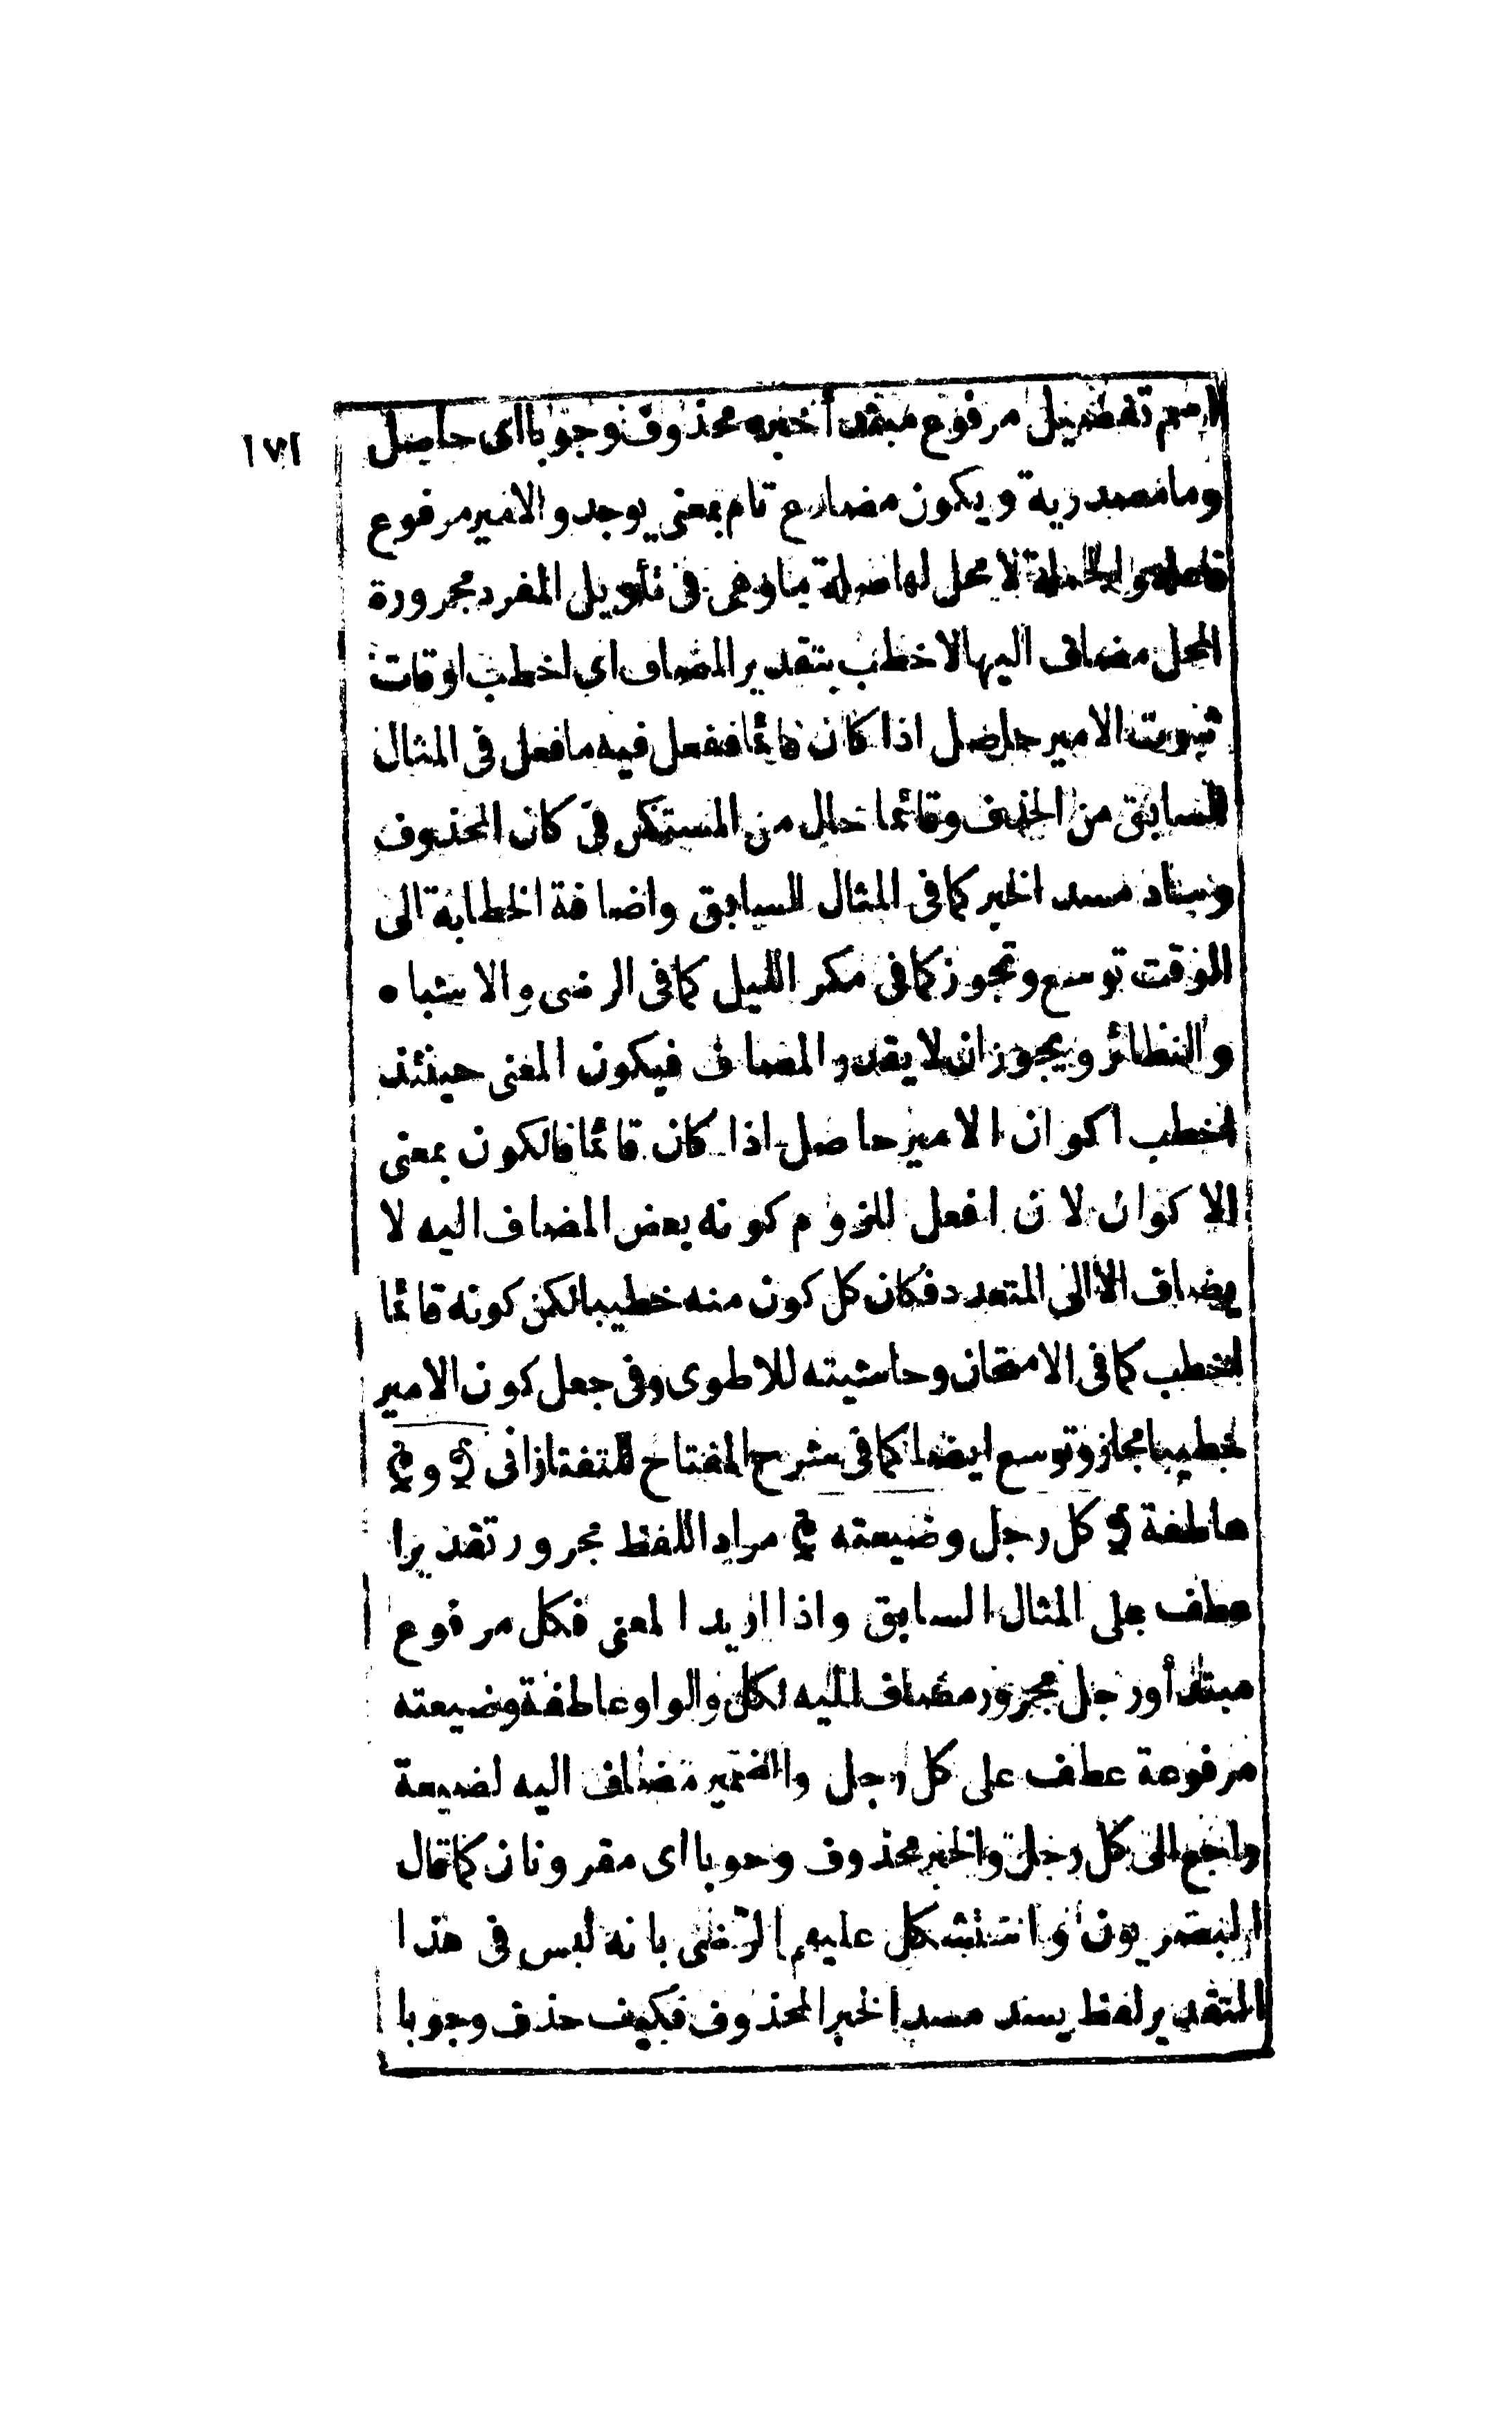 ١٧١
اسم تفضيل مرفوع مبتدأ خبره محذوف وجوبا اى حاصل
وما مصدرية ويكون مضارع تام بمعنى يوجد والامير مرفوع
فاعله والجملة لا محل لها صلة ما وهى فى تأويل المفرد مجرورة
المحل مضاف اليها لاخطب بتقدير المضاف اى اخطب اوقات
ثبوت الامير حاصل اذا كان قائما ففعل فيه ما فعل فى المثال
السابق من الحذف وقائما حال من المستكن فى كان المحذوف
وساد مسد الخبر كما فى المثال السابق واضافة الخطابة الى
الوقت توسع وتجوز كما فى مكر الليل كما فى الرضى والاشباه
والنظائر ويجوز ان لا يقدر المضاف فيكون المعنى حينئذ
اخطب اكوان الامير حاصل اذا كان قائما فالكون بمعنى
الاكوان لان افعل للزوم كونه بعض المضاف اليه لا
يضاف الا الى المتعدد فكان كل كون منه خطيبا لكن كونه قائما
اخطب كما فى الامتحان وحاشيته للاطوى وفى جعل كون الامير
خطيبا مجاز وتوسع ايضا كما فى شرح المفتاح للتفتازانى و
عاطفة كل رجل وضيعته مراد اللفظ مجرور تقديرا
عطف على المثال السابق واذا اريد المعنى فكل مرفوع
مبتدأ ورجل مجرور مضاف اليه لكل والواو عاطفة وضيعته
مرفوعة عطف على كل رجل والضمير مضاف اليه لضيعة
راجع الى كل رجل والخبر محذوف وجوبا اى مقرونان كما قال
البصريون واستشكل عليهم الرضى بانه ليس فى هذا
التقدير لفظ يسد مسد الخبر المحذوف فكيف حذف وجوبا